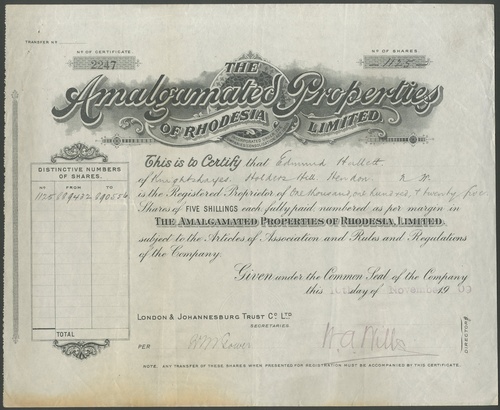 TRANSFER NO
NO OF CERTIFICATE
2247
NO OF SHARES.
1125
THE
Amalgamated Properties
OF RHODESIA LIMITED
This is to Certify that Edmund Hallett
of Knightshayes. Holders Hill. Hendon N. W.
is the Registered Proprietor of One thousand one hundred & twenty five
Shares of FIVE SHILLINGS each, fully paid, numbered as per margin in
THE AMALGAMATED PROPERTIES OF RHODESIA, LIMITED.
subject to the Articles of Association and Rules and Regulations
of the Company.
Given under the Common Seal of the Company
this day of November 19
DISTINCTIVE NUMBERS
OF SHARES.
NO FROM TO
1125
TOTAL
LONDON & JOHANNESBURG TRUST CO. LTD
SECRETARIES.
PER
DIRECTORS
NOTE. ANY TRANSFER OF THESE SHARES WHEN PRESENTED FOR REGISTRATION MUST BE ACCOMPANIED BY THIS CERTIFICATE.